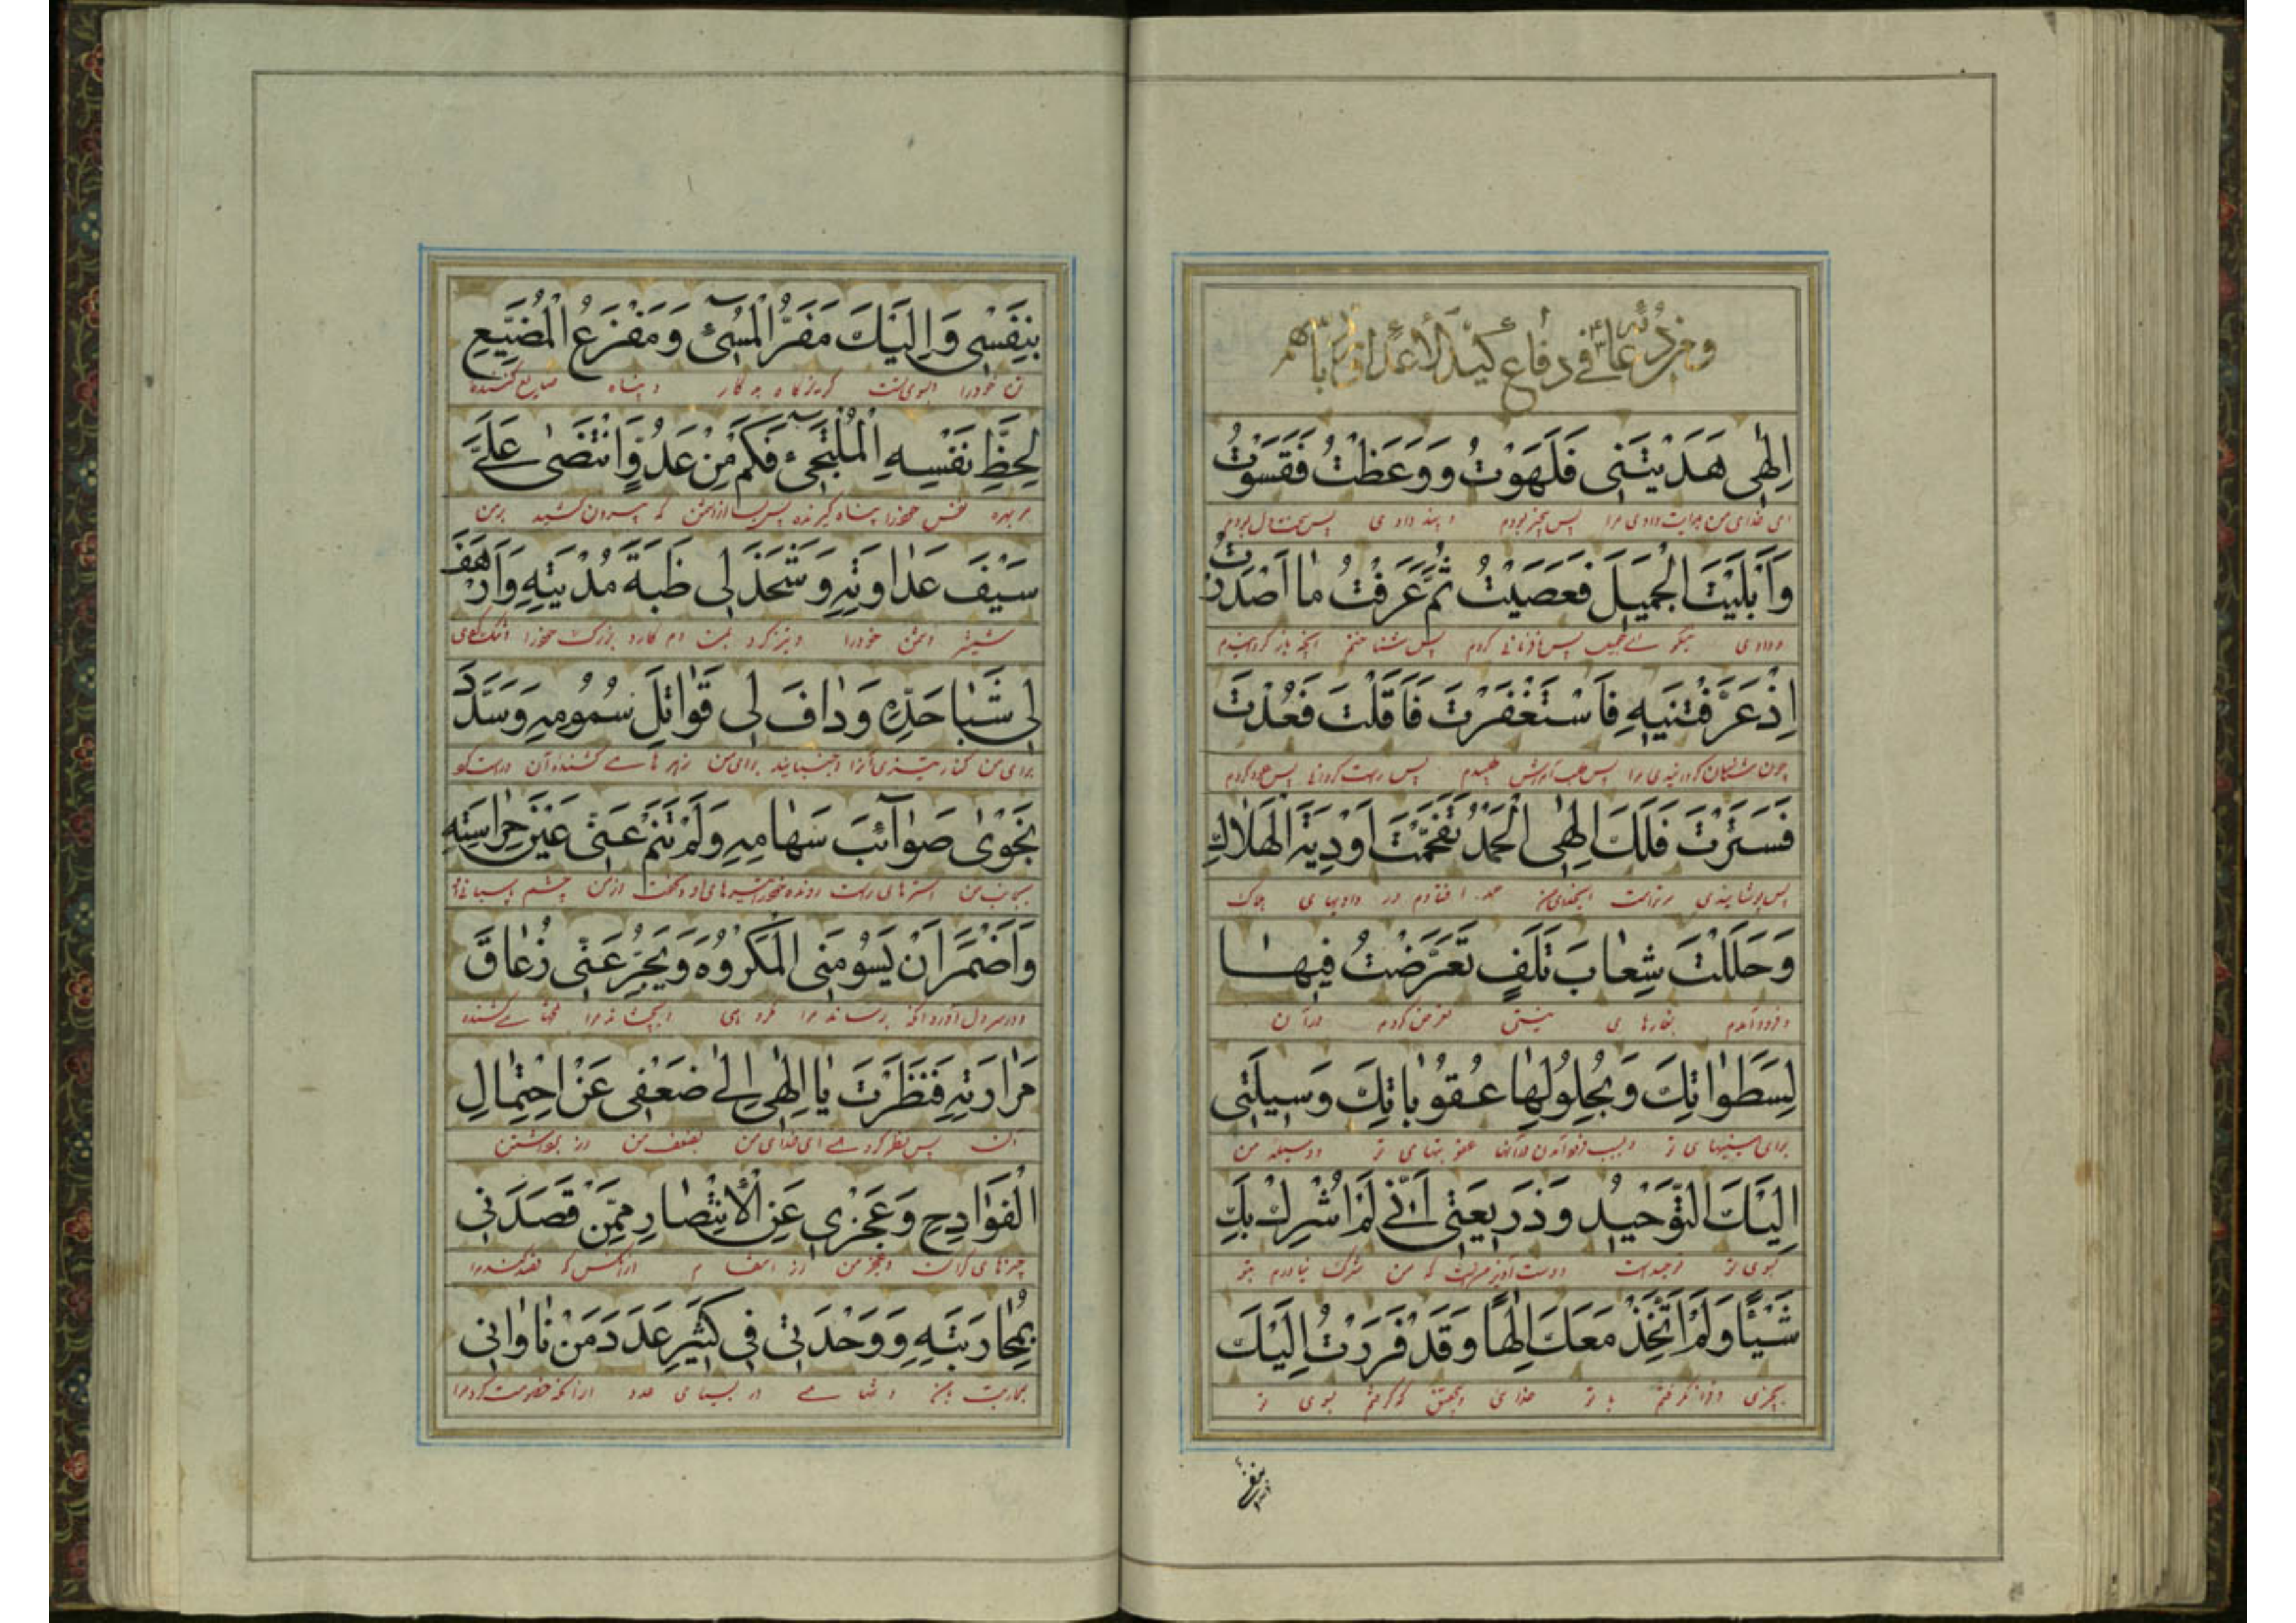 ومن دعائه في دفاع كيد الأعداء ورد بأسهم
اِلٰهِى هَدَيْتَنِى فَلَهَوْتُ وَوَعَظْتَ فَقَسَوْتُ
ای خدای من هدایت دادی مرا پس بیخبر بودم و پند دادی پس سخت دل بودم
وَاَبْلَيْتَ الْجَمِيلَ فَعَصَيْتُ ثُمَّ عَرَفْتُ مٰا اَصْدَرْتَ
و دادی نیکو پس نافرمانی کردم پس شناختم آنچه باز گردانیدم
اِذْ عَرَّفْتَنِيهِ فَاسْتَغْفَرْتُ فَاَقَلْتَ فَعُدْتُ
چون شناسان گردانیدی مرا پس طلب آمرزش پس عود کردم
فَسَتَرْتَ فَلَكَ اِلٰهِى الْحَمْدُ تَقَحَّمْتُ اَوْدِيَةَ الْهَلاٰكِ
پس پوشانیدی مر تراست ایخدای من حمد افتادم در وادیهای هلاک
وَحَلَلْتُ شِعٰابَ تَلَفٍ تَعَرَّضْتُ فِيهٰا
و فرود آمدم نیستی تعرض کردم در آن
لِسَطَوٰاتِكَ وَبِحُلُولِهٰا عُقُوبٰاتِكَ وَسِيلَتِى
برای تو و بسبب فرود آمدن در آنها عقوبتهای تو و وسیله من
اِلَيْكَ التَّوْحِيْدُ وَذَرِيعَتِى اَنِّى لَمْ اُشْرِكْ بِكَ
بسوی تو توحیدست و دست آویز من که من شرک نیاوردم بتو
شَيْئًا وَلَمْ اَتَّخِذْ مَعَكَ اِلٰهًا وَقَدْ فَرَرْتُ اِلَيْكَ
چیزی و فرا نگرفتم با تو خدای و بتحقیق گریختم بسوی تو
بنفسی
بِنَفْسِى وَاِلَيْكَ مَفَرُّ الْمُسِىٓءِ وَمَفْزَعُ الْمُضَيِّعِ
تن خود را و بسوی تست گریزگاه بد کار و پناه ضایع کننده
لِحَظِّ نَفْسِهِ الْمُلْتَجِىٓءِ فَكَمْ مِنْ عَدُوٍّ انْتَضٰى عَلَىَّ
مر بهره نفس خود را پناه گیرنده پس بسا از دشمن که بیرون کشید بر من
سَيْفَ عَدٰاوَتِهِ وَشَحَذَ لِى ظُبَةَ مُدْيَتِهِ وَاَرْهَفَ
شمشیر دشمنی خود را و تیز کرد دم کارد بزرگ خود را و تنک
لِى شَبٰا حَدِّهِ وَدٰافَ لِى قَوٰاتِلَ سُمُومِهِ وَسَدَّدَ
برای من کنار تیزی آنرا برای من زهرهای کشنده آن
نَحْوِى صَوٰآئِبَ سِهٰامِهِ وَلَمْ تَنَمْ عَنِّى عَيْنُ حِرٰاسَتِهِ
بجانب من راست رونده تیرهای او و نخفت از من چشم پاسبانی او
وَاَضْمَرَ اَنْ يَسُومَنِى الْمَكْرُوهَ وَيُجَرِّعَنِى زُعٰاقَ
و در دل آورد آنکه برساند مرا مکروهی کشنده
مَرٰارَتِهِ فَنَظَرْتَ يٰا اِلٰهِى اِلٰى ضَعْفِى عَنِ احْتِمٰالِ
آن پس نظر کردی ای خدای من بضعف من از برداشتن
الْفَوٰادِحِ وَعَجْزِى عَنِ الْاِنْتِصٰارِ مِمَّنْ قَصَدَنِى
چیزهای گران و عجز من از انتقام از آنکس که قصد کند مرا
بِمُحٰارَبَتِهِ وَوَحْدَتِى فِى كَثِيرِ عَدَدِ مَنْ نٰاوٰانِى
بمحاربت و تنهایی در بسیاری عدد از آنکه خصومت کرد مرا